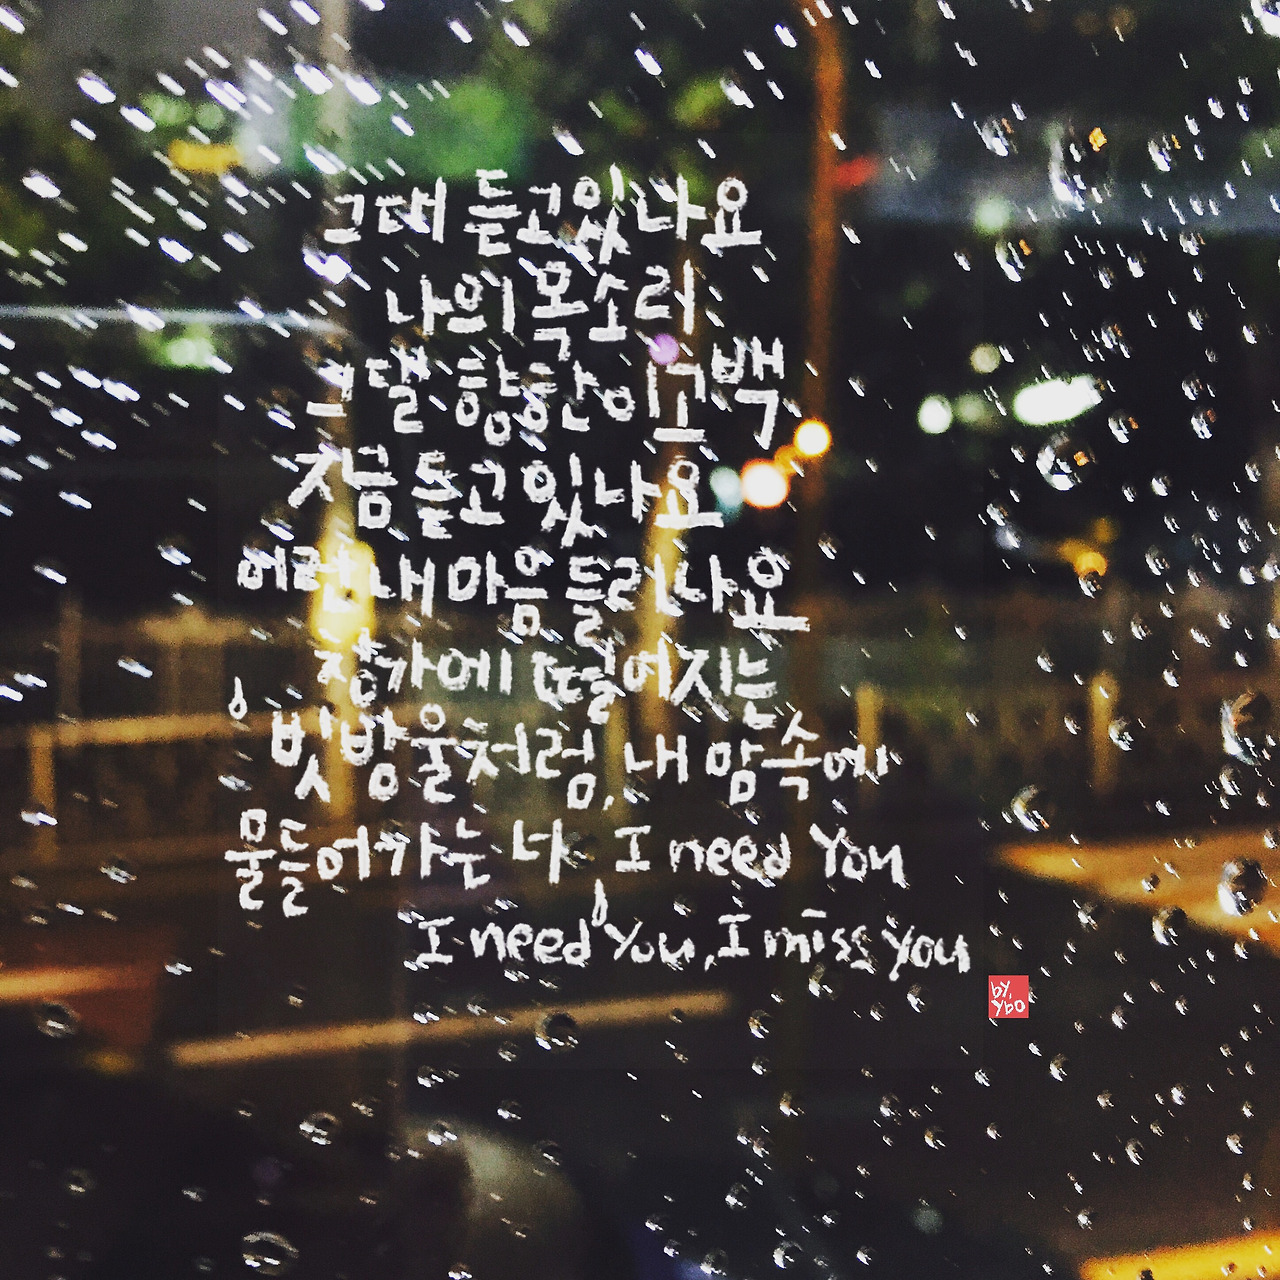 그대 듣고있나요
나의 목소리
그댈 향한 이 고백
지금 듣고 있나요
여린 내 마음 들리나요
창가에 떨어지는
빗방울처럼, 내 맘속에
물들어가는 너, I need You
I need You, I miss you
by.
ybo